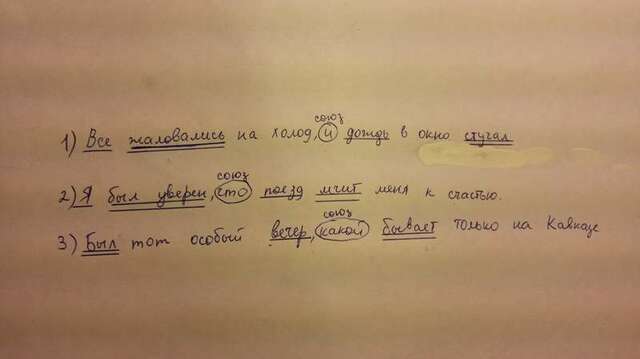 союз
1) Все жаловались на холод, и дождь в окно стучал
союз
2) Я был уверен, что поезд мчит меня к счастью.
союз
3) Был тот особый вечер, какой бывает только на Кавказе